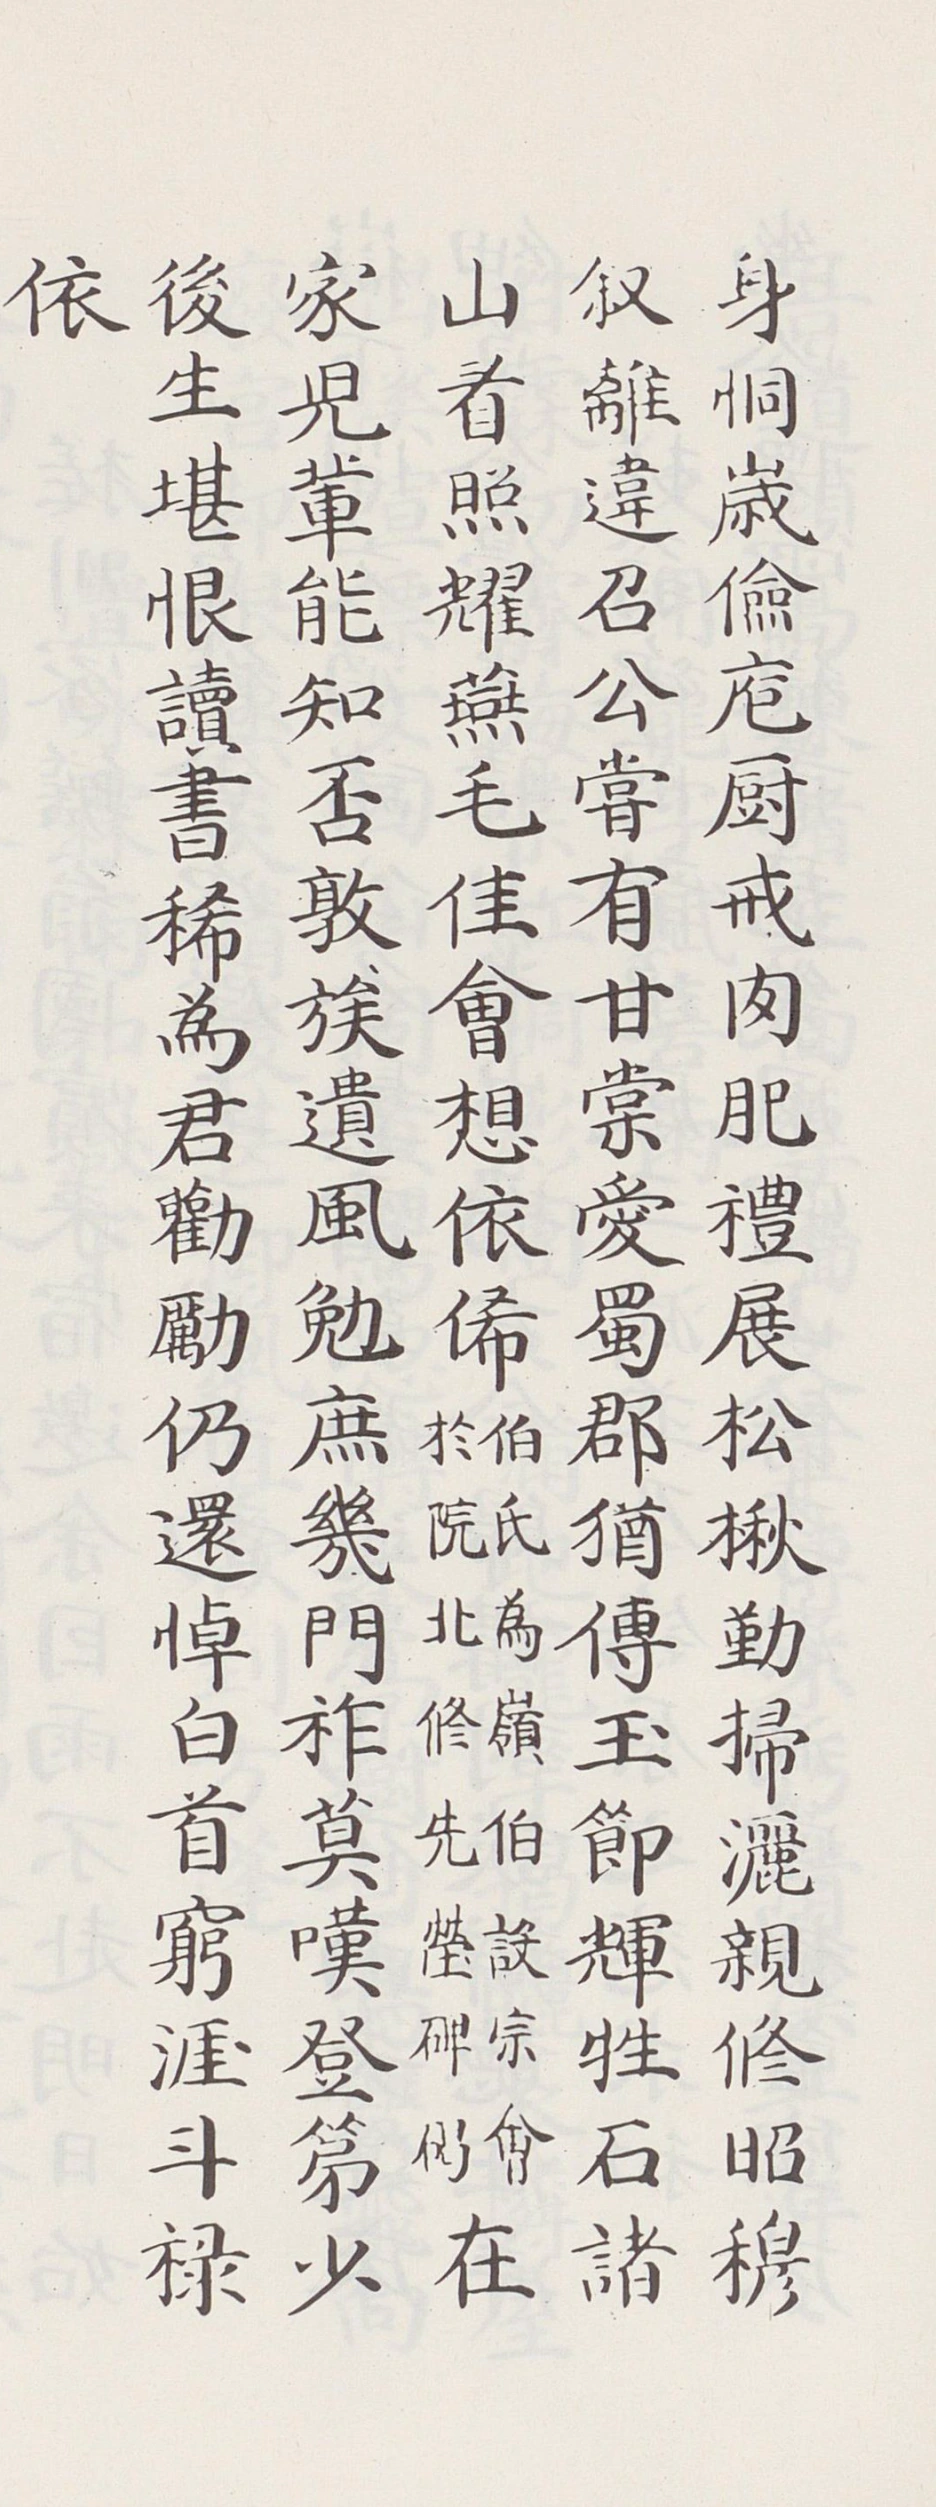 身恫歲儉庖厨戒肉肥禮展松楸勤掃灑親修昭穆
叙離違召公嘗有甘棠愛蜀郡猶傳玉節輝牲石諸
山看照耀蘋毛佳會想依俙
伯氏為嶺伯設宗會
於院北修先塋碑仍
在
家兒輩能知否敦族遺風勉庶幾門祚莫嘆登第少
後生堪恨讀書稀為君勸勵仍還悼白首窮涯斗祿
依